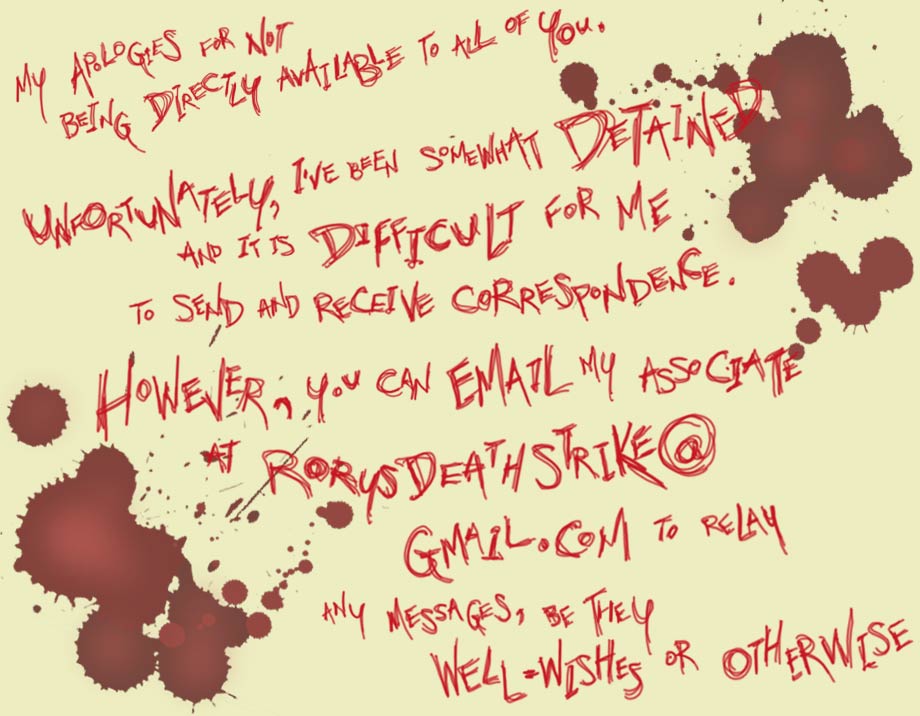 My APOLOGiES FOR NOT
BEING DIRECTLY AVAILABLE TO ALL OF YOU.
UNFORTUNATELY, I'VE BEEN SOMEWHAT DETAINED
AND IT IS DIFFICULT FOR ME
TO SEND AND RECEIVE CORRESPONDENCE.
HOWEVER, YOU CAN EMAIL MY ASSOCIATE
AT RORYSDEATHSTRIKE@
GMAIL.COM TO RELAY
ANY MESSAGES, BE THEY
WELL-WISHES OR OTHERWISE